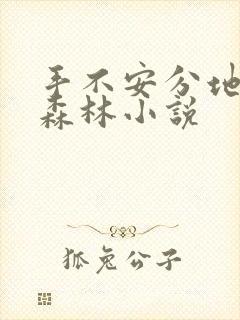 手不安分地
森林小說
狐兔公子